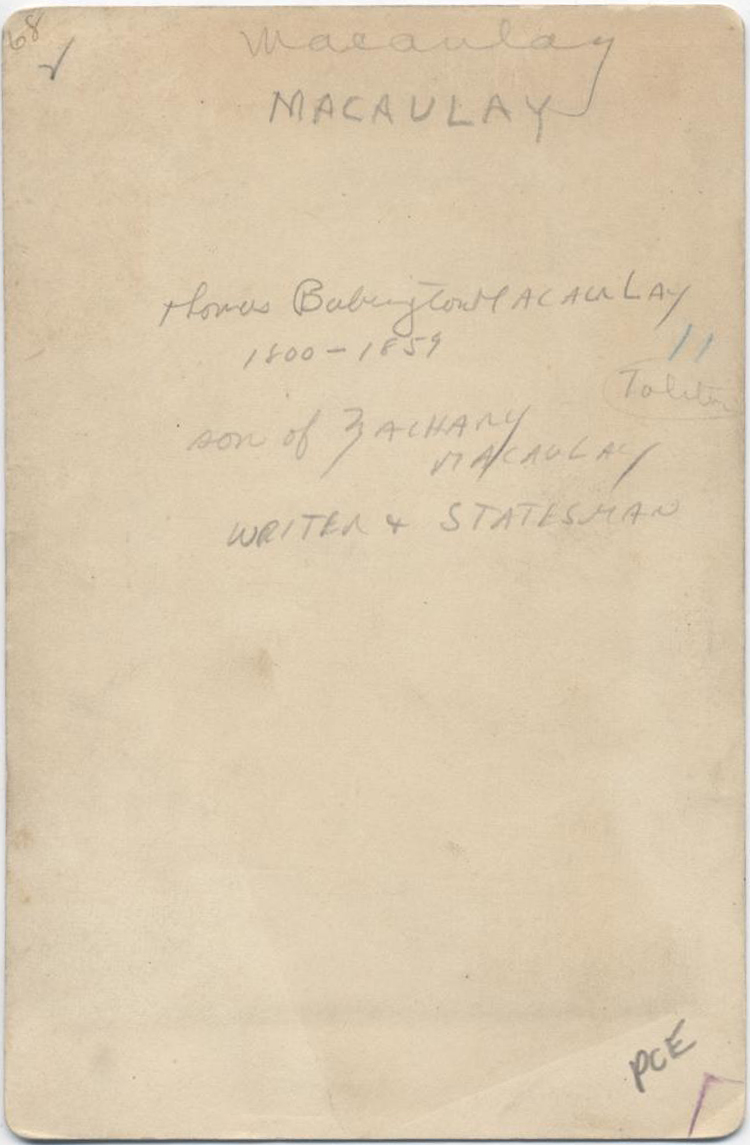 68
Macaulay
MACAULAY
Thomas Babington MACAULAY
1800-1859
11
son of ZACHARY
MACAULAY
WRITER & STATESMAN
PCE